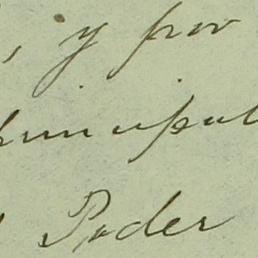 , y por
principal
Poder